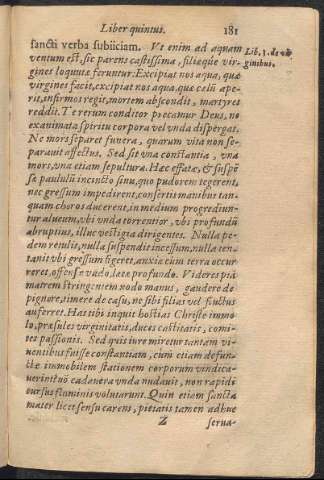 Liber quintus. 181
sancti verba subiiciam. Vt enim ad aquam
Lib. 3. de vir
ginibus.
ventum est, sic parens castissima, filiæque vir-
gines loquutæ feruntur. Excipiat nos aqua, quæ
virgines facit, excipiat nos aqua, quæ celũ ape-
rit, infirmos regit, mortem abscondit, martyres
reddit. Te rerum conditor precamur Deus, ne
exanimata spiritu corpora vel vnda dispergat.
Ne mors separet funera, quarum vita non se-
parauit affectus. Sed sit vna constantia, vna
mors, vna etiam sepultura. Hæc effatæ, & suspẽ
sæ paululũ incincto sinu, quo pudorem tegerent,
nec gressum impedirent, consertis manibus tan-
quam choros ducerent, in medium progrediun-
tur alueum, vbi vnda torrentior, vbi profundũ
abruptius, illuc vestigia dirigentes. Nulla pe-
dem retulit, nulla suspendit incessum, nulla ten-
tauit vbi gressum figeret, anxiæ cùm terra occur
reret, offensæ vado, lætæ profundo. Videres piã
matrem stringentem nodo manus, gaudere de
pignore, timere de casu, ne sibi filias vel fluctus
auferret. Has tibi inquit hostias Christe immo-
lo, præsules virginitatis, duces castitatis, comi-
tes passionis. Sed quis iure miretur tantam vi-
uentibus fuisse constantiam, cùm etiam defun-
ctæ immobilem stationem corporum vindica-
uerint? nõ cadauera vnda nudauit, non rapidi
cursus fluminis volutarunt. Quin etiam sancta
mater licet sensu carens, pietatis tamen adhuc
Z serua-